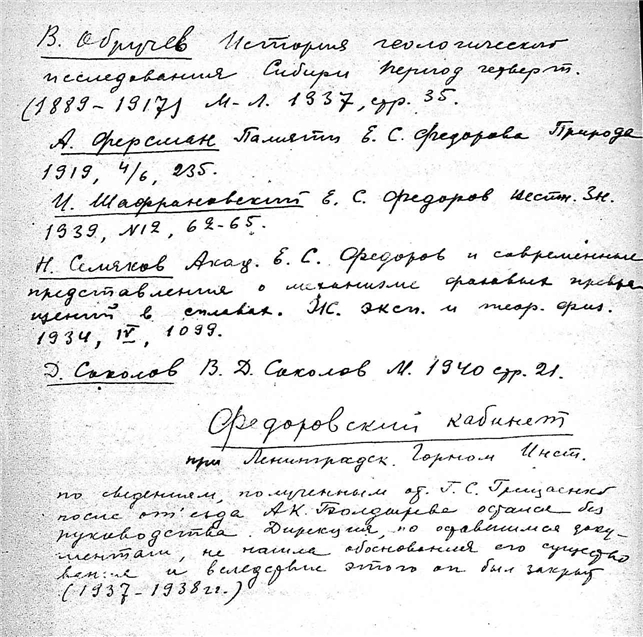 В. Обручев История геологического
исследования Сибири период четверт.
(1889-1917) М-Л. 1937, стр. 35.
А. Ферсман Памяти Е. С. Федорова Природа
1919, 4/6, 235.
И. Шафрановский Е. С. Федоров Вестн. Зн.
1939, №12, 62-65.
Н. Семяков Акад. Е. С. Федоров и современные
представления о механизме фазовых превра
щений в сплавах. Ж. эксп. и теор. физ.
1934, IV, 1099.
Д. Соколов В. Д. Соколов М. 1940 стр. 21.
Федоровский кабинет
при Ленинградск. Горном Инст.
по сведениям, полученным от Г. С.
после от'езда А.К. Болдырева остался без
руководства. Дирекция, по оставшимся доку-
ментам, не нашла обоснования его существо
вания и вследствие этого он был закрыт
(1937-1938 гг.)